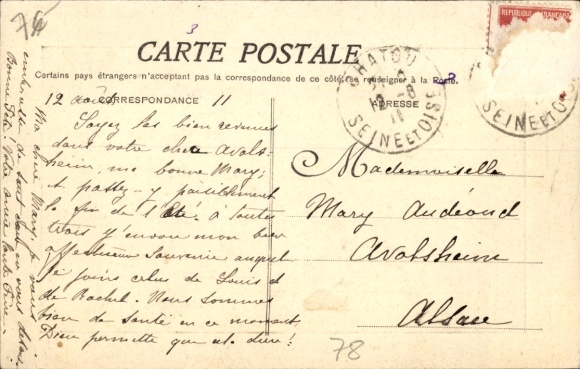 76
3
REPUBLIQUE FRANÇAISE
CARTE POSTALE
Certains pays étrangers n'acceptent pas la correspondance de ce côté, se renseigner à la Poste.
CORRESPONDANCE
ADRESSE
12 août 11
CHATOU
SEINE ET OISE
SEINE ET O
Soyez les bien venues
dans votre cher Avols-
heim, ma bonne Mary;
et passez-y paisiblement
la fin de l'Eté. à toutes
trois j'envoie mon bien
affectueux Souvenir auquel
je joins celui de Louis et
de Rachel. Nous sommes
bien de santé en ce moment
Dieu permette que cela dure!
Ma chère Mary, je vous
embrasse de tout cœur en vous disant
Bonne Fête. Votre amie
Mademoiselle
Mary Audéoud
Avolsheim
Alsace
78